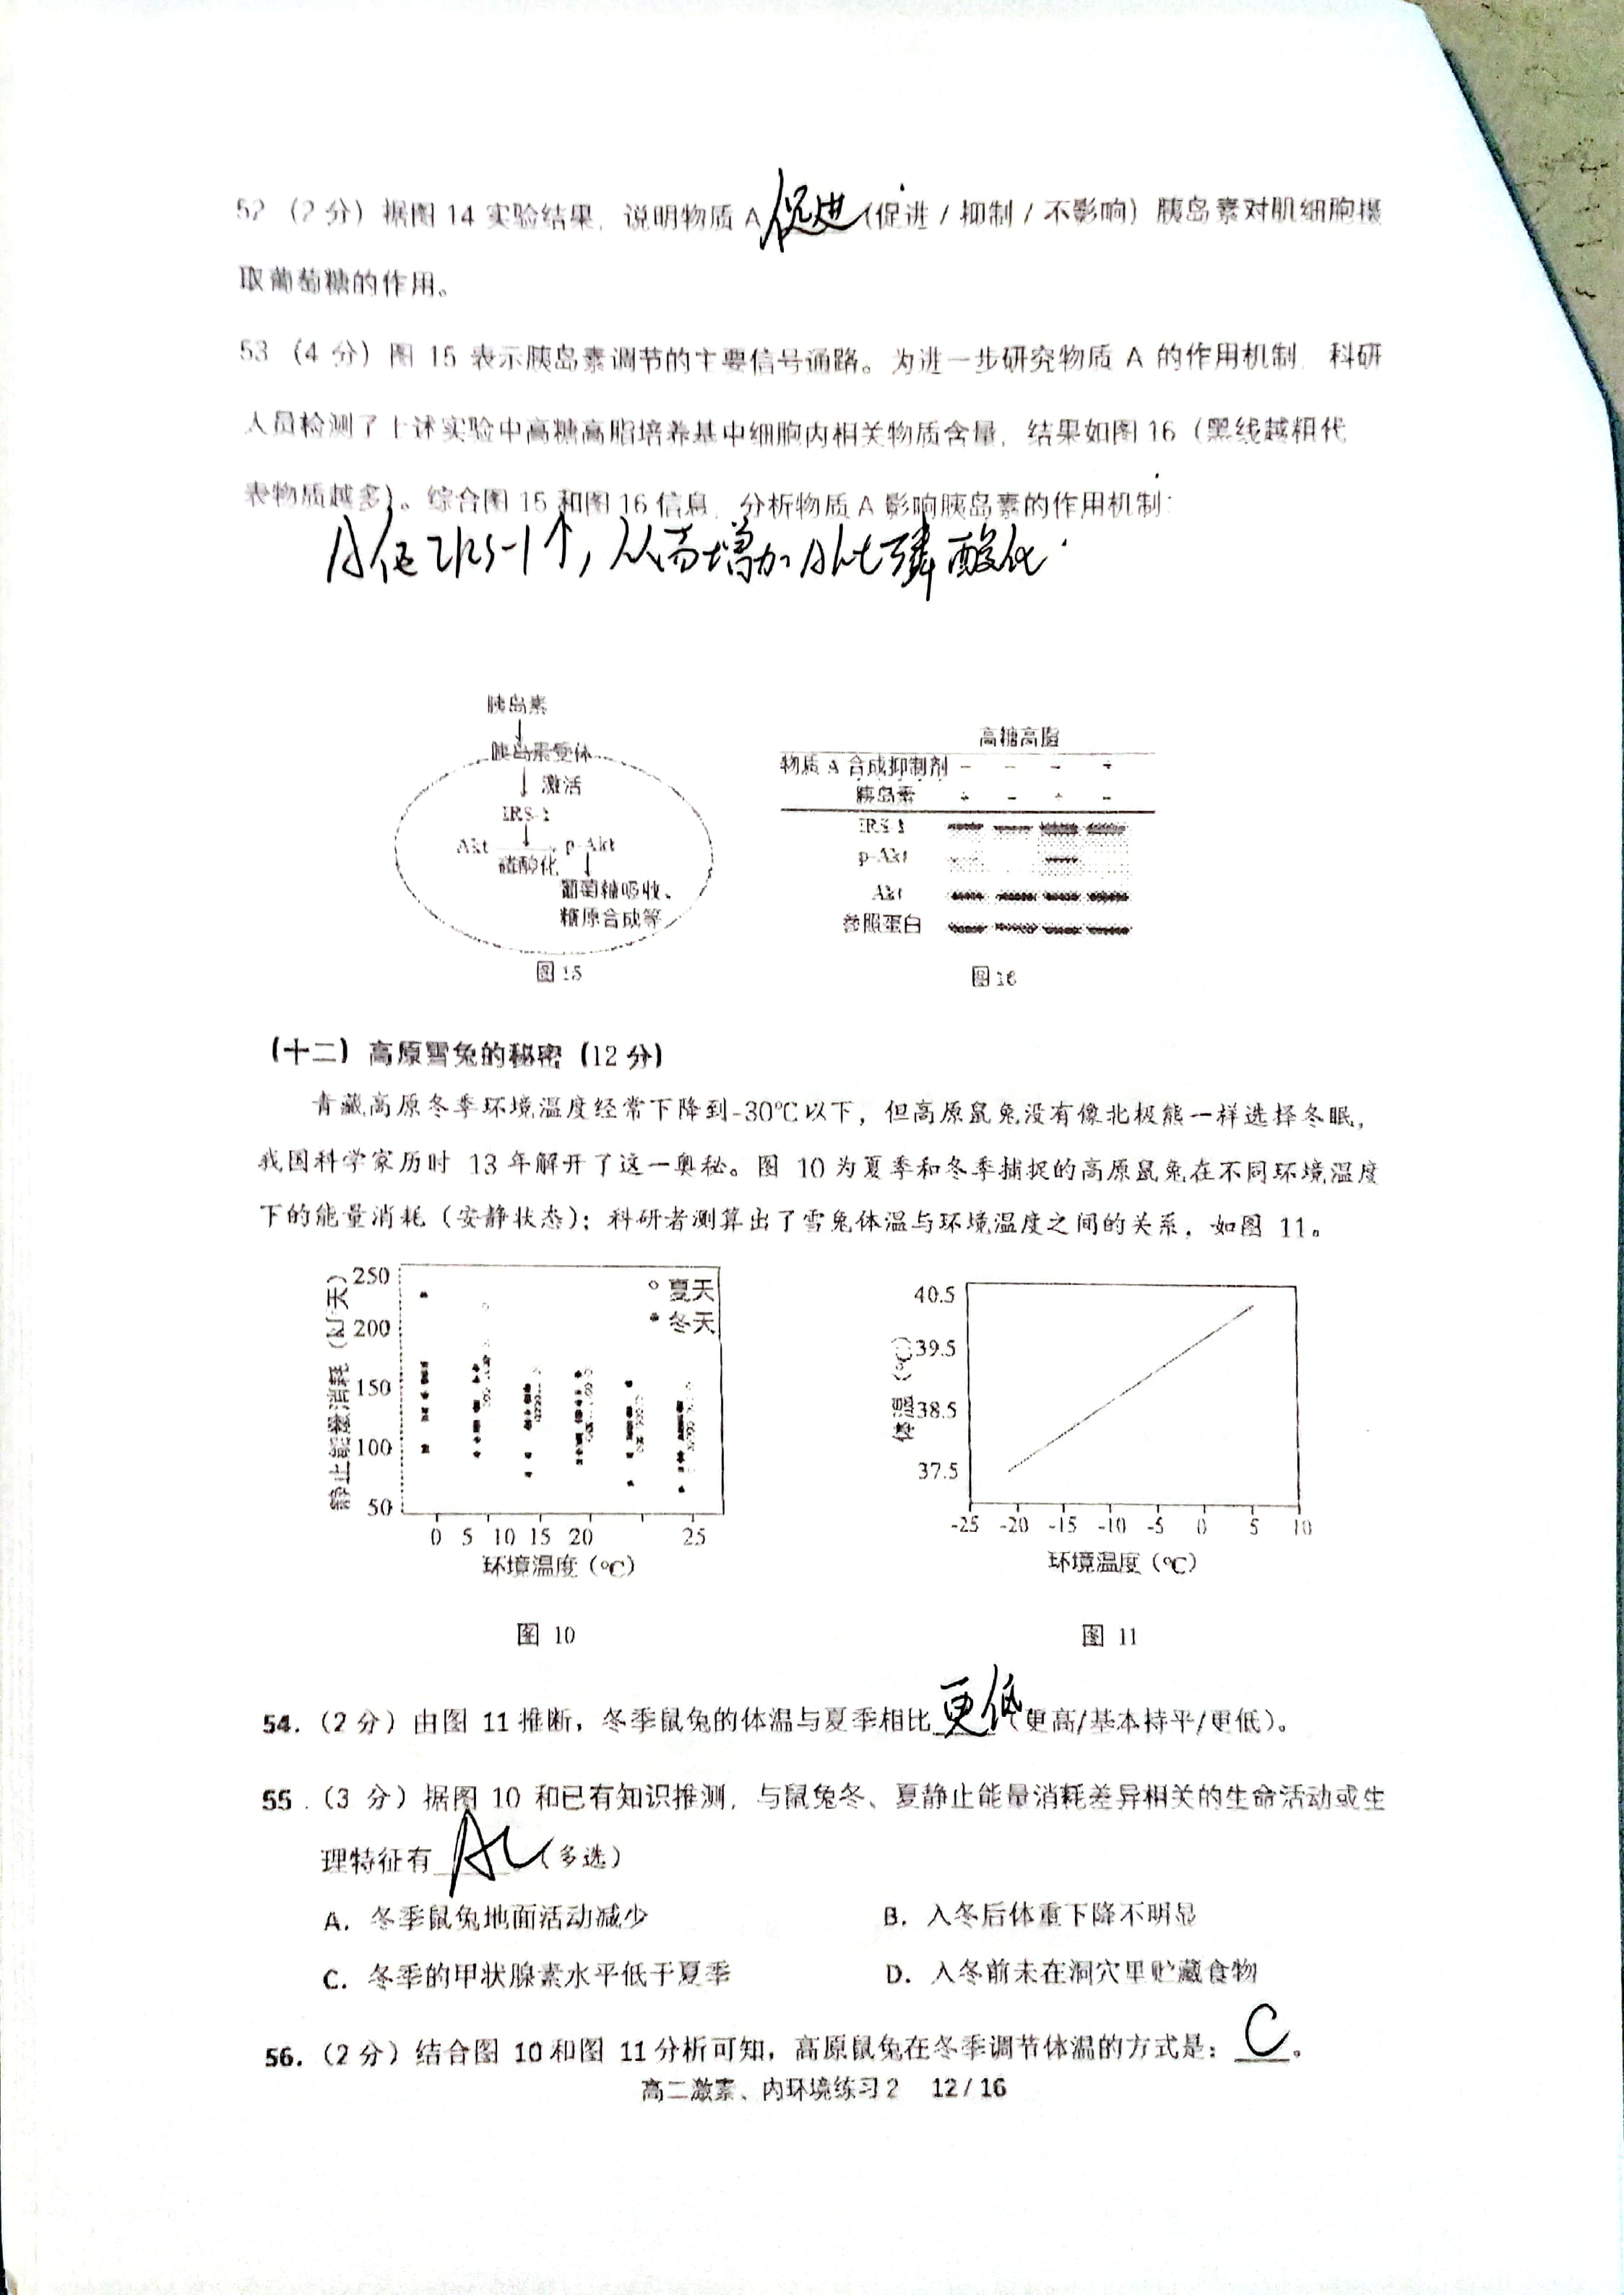 52 (2 分) 据图 14 实验结果, 说明物质 A 促进 (促进 / 抑制 / 不影响) 胰岛素对肌细胞摄
取葡萄糖的作用。
53 (4 分) 图 15 表示胰岛素调节的主要信号通路。为进一步研究物质 A 的作用机制, 科研
人员检测了上述实验中高糖高脂培养基中细胞内相关物质含量, 结果如图 16 (黑线越粗代
表物质越多)。综合图 15 和图 16 信息, 分析物质 A 影响胰岛素的作用机制:
A促IRS-1↑, 从而增加Akt磷酸化.
胰岛素
胰岛素受体
激活
IRS-1
Akt p-Akt
磷酸化
葡萄糖吸收、
糖原合成等
图 15
高糖高脂
物质 A 合成抑制剂 - - - +
胰岛素 + - + -
IRS-1
p-Akt
Akt
参照蛋白
图 16
(十二) 高原雪兔的秘密 (12 分)
青藏高原冬季环境温度经常下降到-30℃以下, 但高原鼠兔没有像北极熊一样选择冬眠,
我国科学家历时 13 年解开了这一奥秘。图 10 为夏季和冬季捕捉的高原鼠兔在不同环境温度
下的能量消耗 (安静状态); 科研者测算出了雪兔体温与环境温度之间的关系, 如图 11。
静止能量消耗 (kJ/天)
250
200
150
100
50
○ 夏天
● 冬天
0 5 10 15 20 25
环境温度 (℃)
图 10
体温 (℃)
40.5
39.5
38.5
37.5
-25 -20 -15 -10 -5 0 5 10
环境温度 (℃)
图 11
54. (2 分) 由图 11 推断, 冬季鼠兔的体温与夏季相比 更低 (更高/基本持平/更低)。
55. (3 分) 据图 10 和已有知识推测, 与鼠兔冬、夏静止能量消耗差异相关的生命活动或生
理特征有 AC (多选)
A. 冬季鼠兔地面活动减少 B. 入冬后体重下降不明显
C. 冬季的甲状腺素水平低于夏季 D. 入冬前未在洞穴里贮藏食物
56. (2 分) 结合图 10 和图 11 分析可知, 高原鼠兔在冬季调节体温的方式是: C 。
高二激素、内环境练习 2 12 / 16